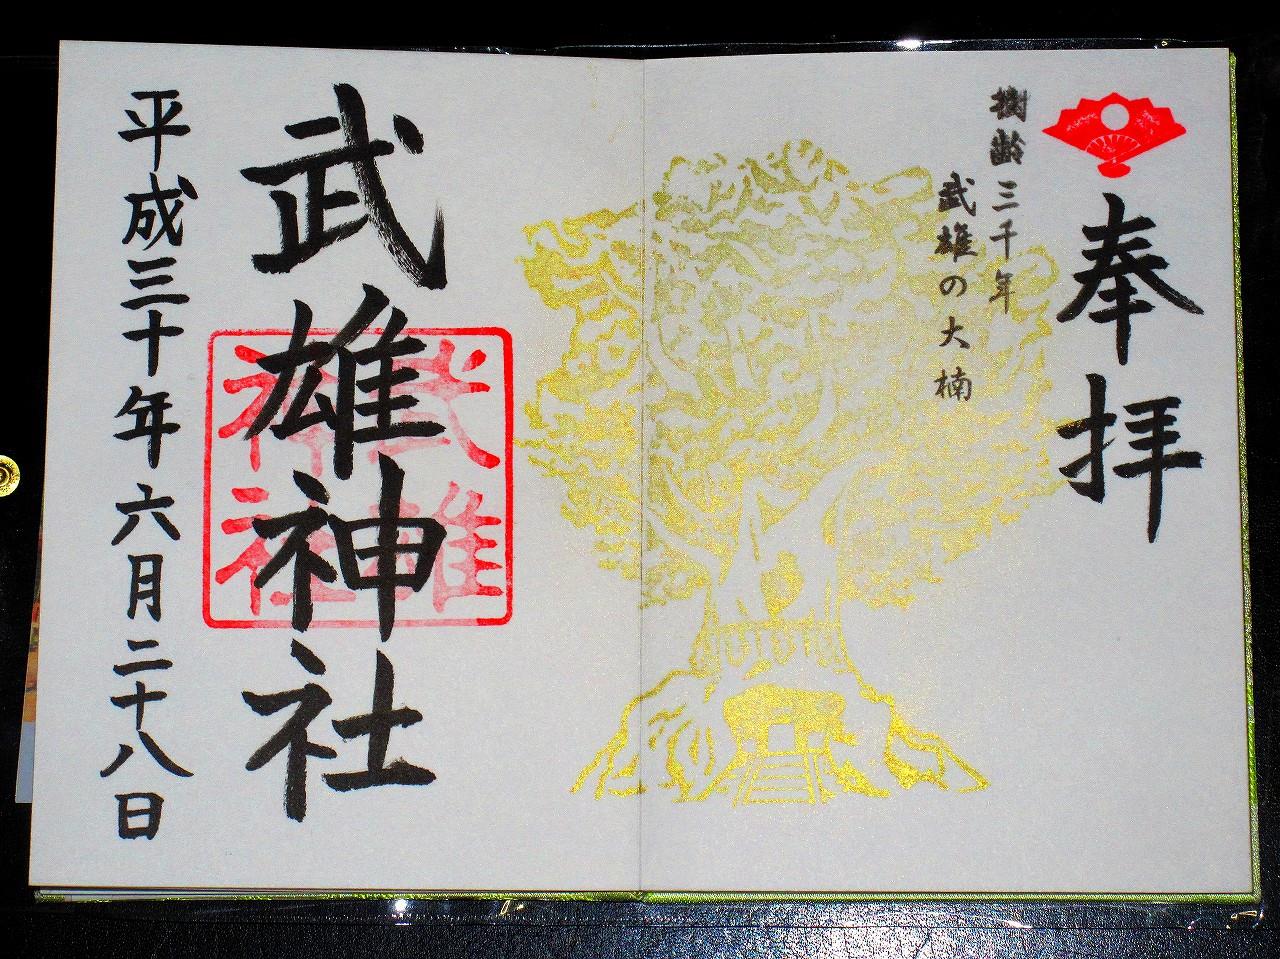 奉拝
樹齢三千年
武雄の大楠
武雄神社
武雄
神社
平成三十年六月二十八日